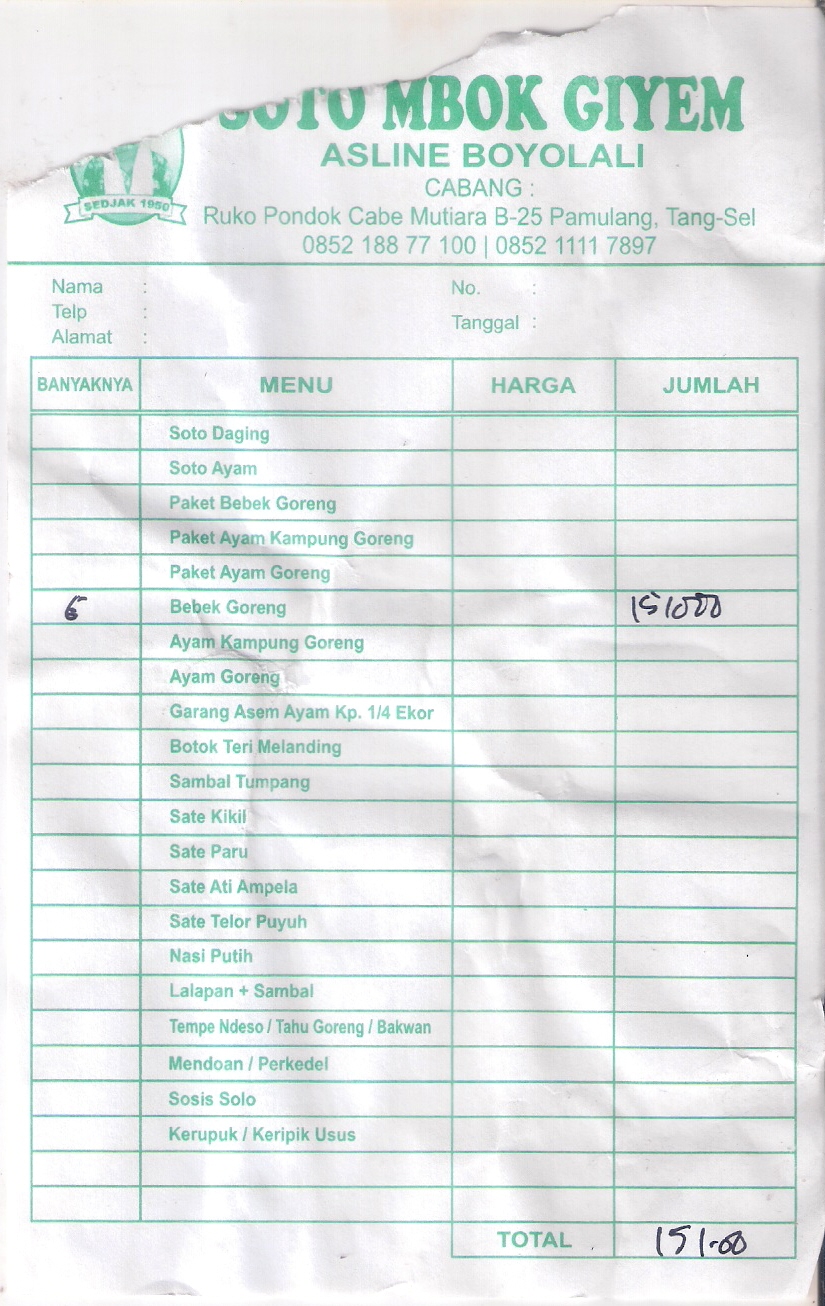 SOTO MBOK GIYEM
ASLINE BOYOLALI
SEDJAK 1950
CABANG :
Ruko Pondok Cabe Mutiara B-25 Pamulang, Tang-Sel
0852 188 77 100 | 0852 1111 7897
Nama : No. :
Telp :
Tanggal :
Alamat :
BANYAKNYA MENU HARGA JUMLAH
Soto Daging
Soto Ayam
Paket Bebek Goreng
Paket Ayam Kampung Goreng
Paket Ayam Goreng
6 Bebek Goreng 151000
Ayam Kampung Goreng
Ayam Goreng
Garang Asem Ayam Kp. 1/4 Ekor
Botok Teri Melanding
Sambal Tumpang
Sate Kikil
Sate Paru
Sate Ati Ampela
Sate Telor Puyuh
Nasi Putih
Lalapan + Sambal
Tempe Ndeso / Tahu Goreng / Bakwan
Mendoan / Perkedel
Sosis Solo
Kerupuk / Keripik Usus
TOTAL 151.00